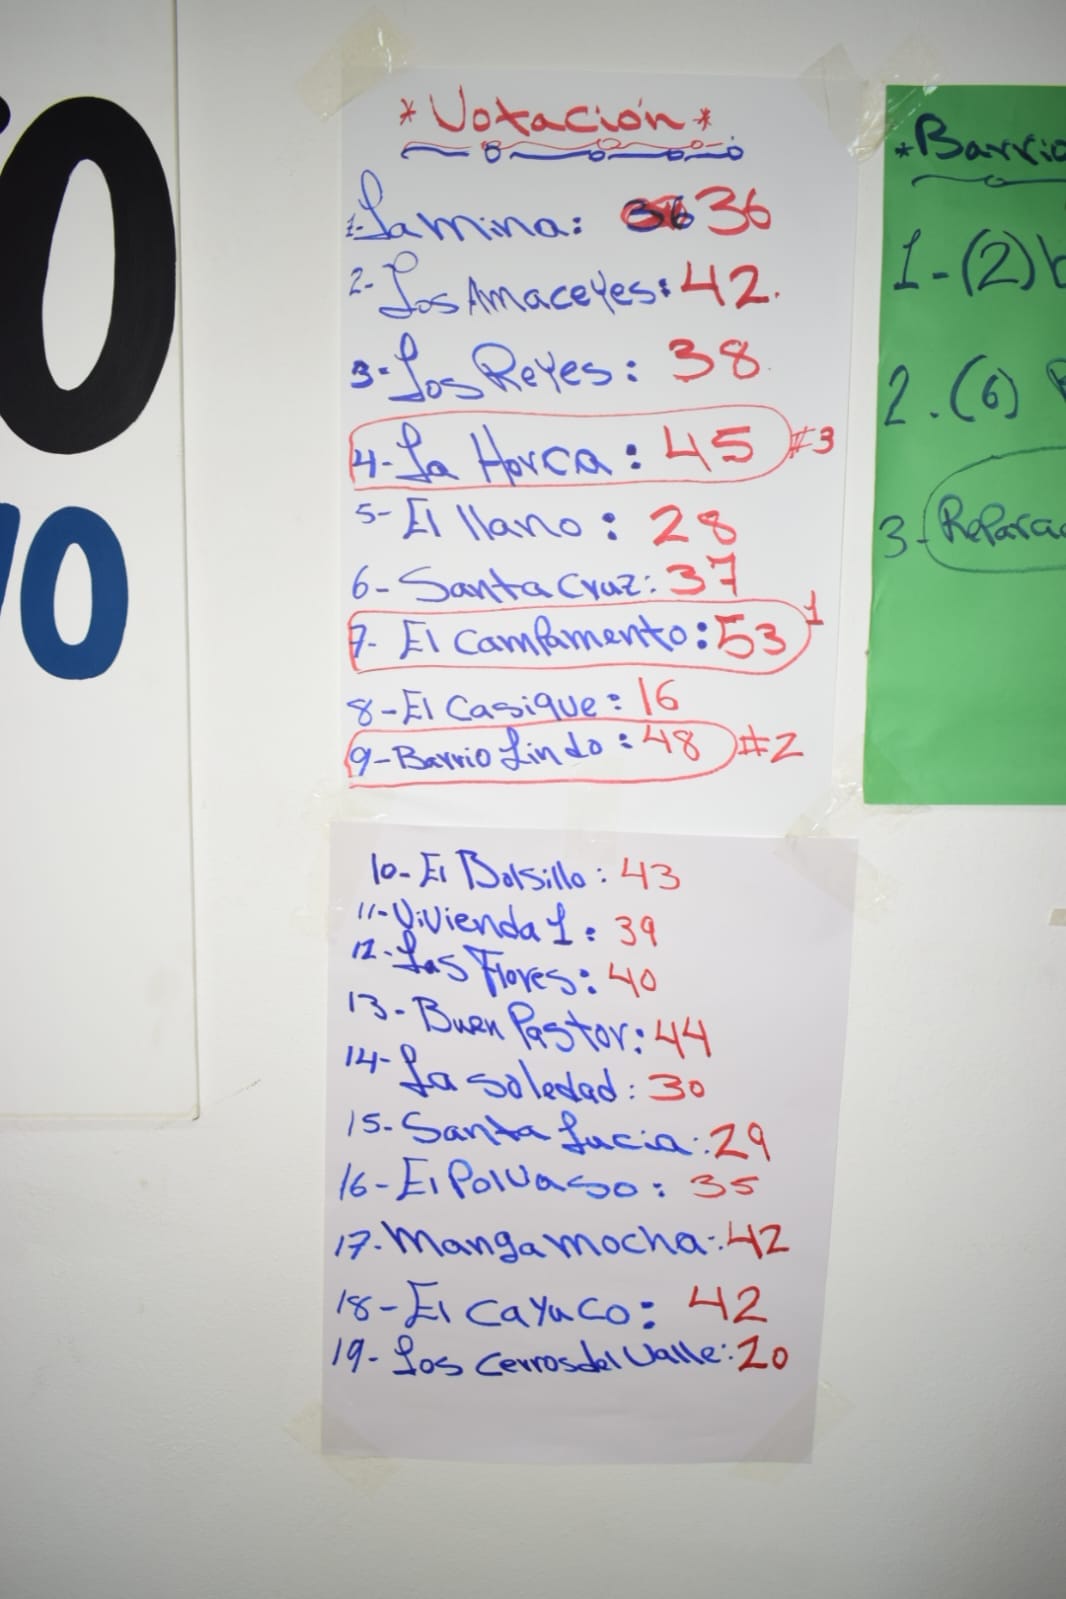 *Votación*
1-La mina: 36 36
2- Los Amaceyes: 42.
3-Los Reyes: 38
4-La Horca: 45 #3
5-El llano: 28
6-Santa Cruz: 37
7- El Campamento: 53 1
8-El Casique: 16
9-Barrio Lindo: 48 #2
10-El Bolsillo: 43
11-Vivienda 1: 39
12-Las Flores: 40
13-Buen Pastor: 44
14-La Soledad: 30
15-Santa Lucia: 29
16-El Polvaso: 35
17-Manga mocha: 42
18-El Cayuco: 42
19-Los Cerros del Valle: 20
*Barrio
1-(2)
2.(6)
3-